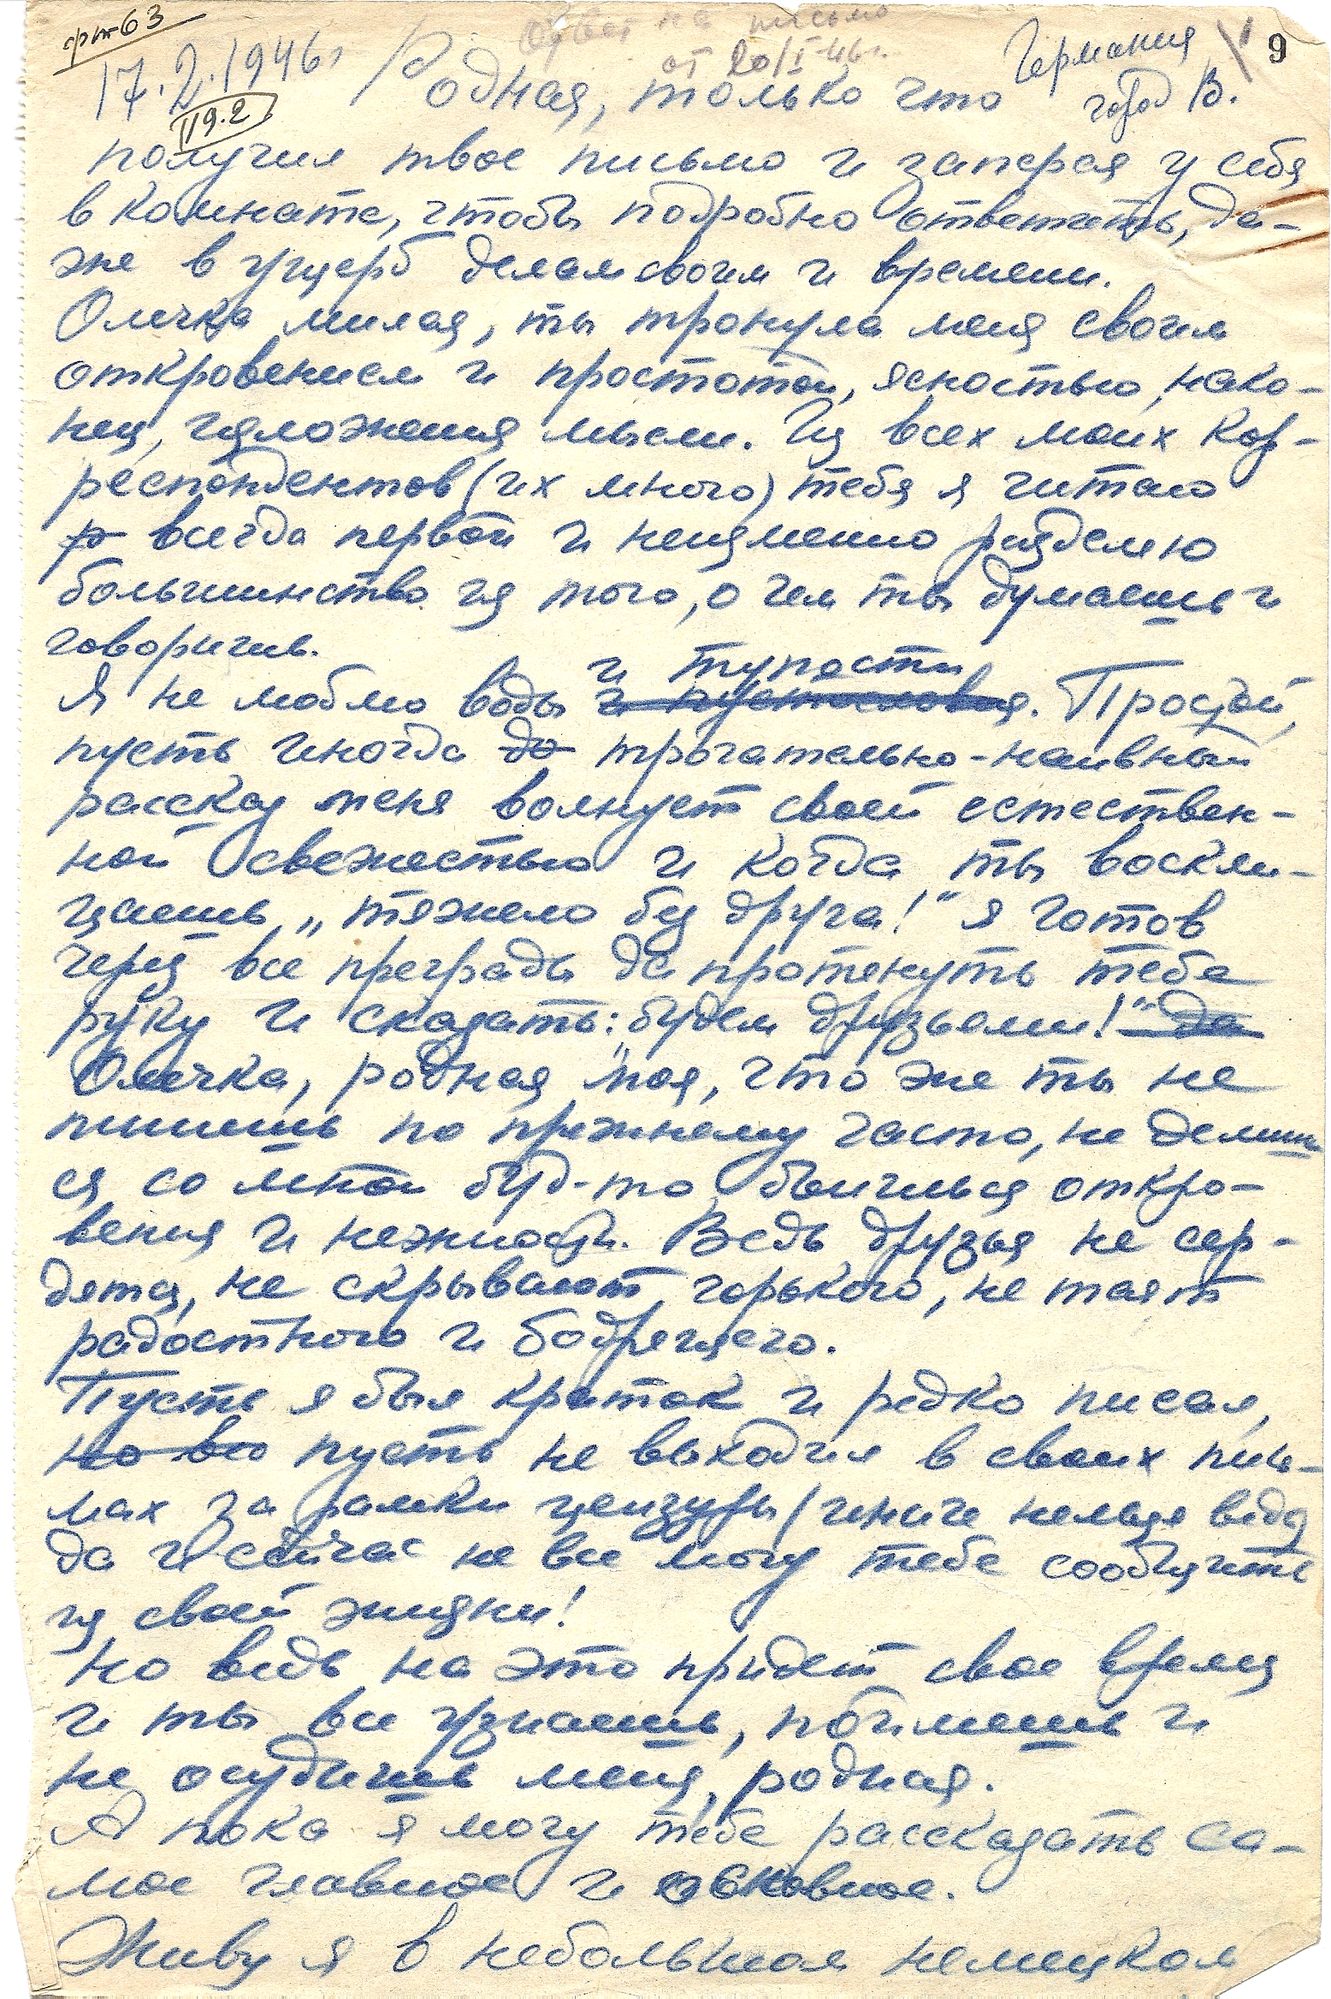 фп63
Ответ на письмо
от 20/I-46г.
Германия
город В.
9
17.2.1946г Родная, только что
119.2
получил твое письмо и заперся у себя
в комнате, чтобы подробно ответить, да-
же в ущерб делам своим и времени.
Олечка милая, ты тронула меня своим
откровением и простотой, ясностью, нако-
нец, изложения мысли. Из всех моих кор-
респондентов (их много) тебя я читаю
р всегда первой и неизменно разделяю
большинство из того, о чем ты думаешь и
говоришь.
и тупости
Я не люблю воды и пустословия. Простой,
пусть иногда до трогательно-наивный
рассказ меня волнует своей естествен-
ной свежестью и когда ты воскли-
цаешь „тяжело без друга!“ я готов
через все преграды да протянуть тебе
руку и сказать: „будем друзьями!“ да
Олечка, родная моя, что же ты не
пишешь по прежнему часто, не делишь-
ся со мной буд-то боишься откро-
вения и нежности. Ведь друзья не сер-
дятся, не скрывают горького, не таят
радостного и бодрящего.
Пусть я был краток и редко писал,
но во пусть не выходил в своих пись-
мах за рамки цензуры (иначе нельзя ведь)
да и сейчас не все могу тебе сообщить
из своей жизни!
Но ведь на это придет свое время
и ты все узнаешь, поймешь и
не осудишь меня, родная.
А пока я могу тебе рассказать са-
мое главное и основное.
Живу я в небольшом немецком